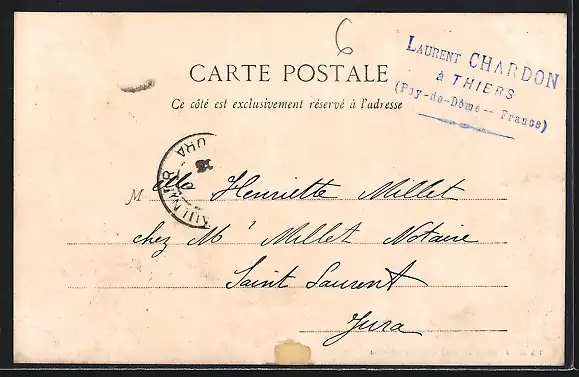 6
LAURENT CHARDON
à THIERS
(Puy-de-Dôme -- France)
CARTE POSTALE
Ce côté est exclusivement réservé à l'adresse
URA
Melle Henriette Millet
chez Me Millet Notaire
Saint Laurent
Jura